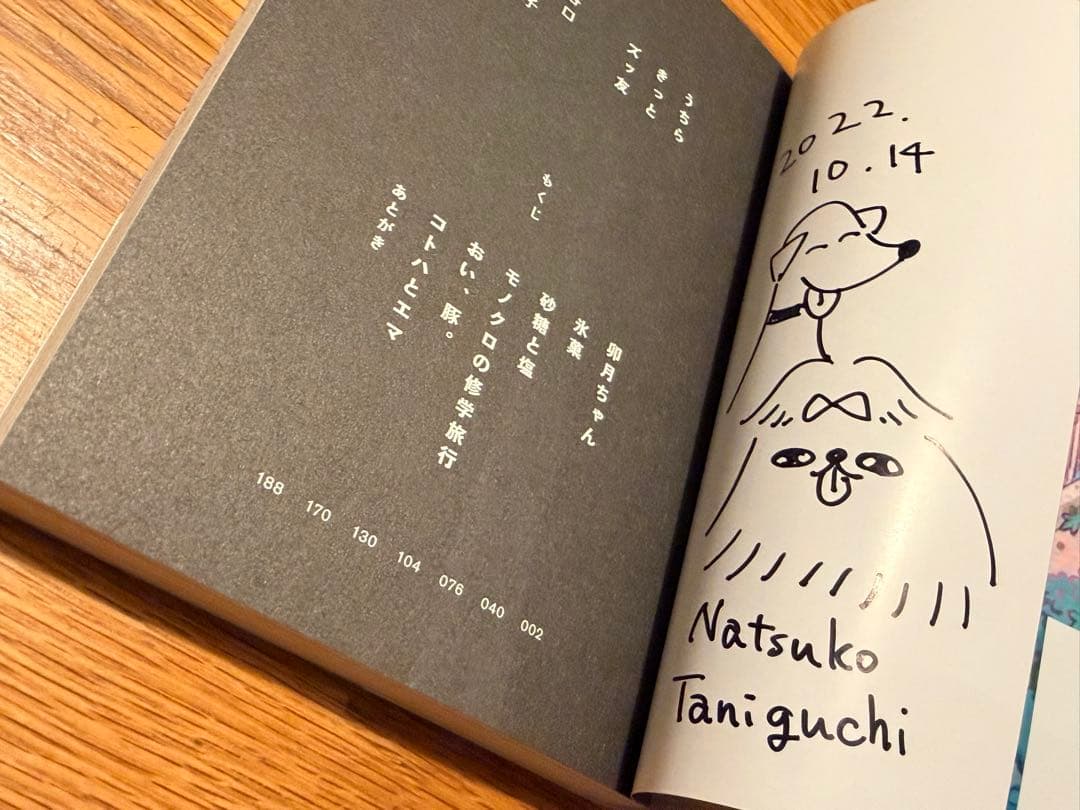 うちら
きっと
ズッ友
もくじ
卯月ちゃん
氷菓
砂糖と塩
モノクロの修学旅行
おい、豚。
コトハとエマ
あとがき
002
040
076
104
130
170
188
2022.
10.14
Natsuko
Taniguchi